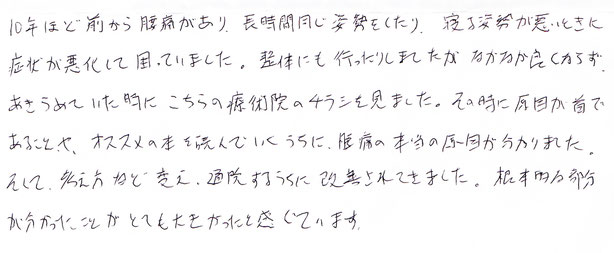 10年ほど前から腰痛があり、長時間同じ姿勢をしたり、寝る姿勢が悪いときに
症状が悪化して困っていました。整体にも行ったりしてたがなかなか良くならず、
あきらめていた時にこちらの療術院のチラシを見ました。その時に原因が首で
あることや、オススメの本を読んでいくうちに、腰痛の本当の原因が分かりました。
そして、考え方など変え、通院するうちに改善されてきました。根本的な部分
が分かったことがとても大きかったと感じています。